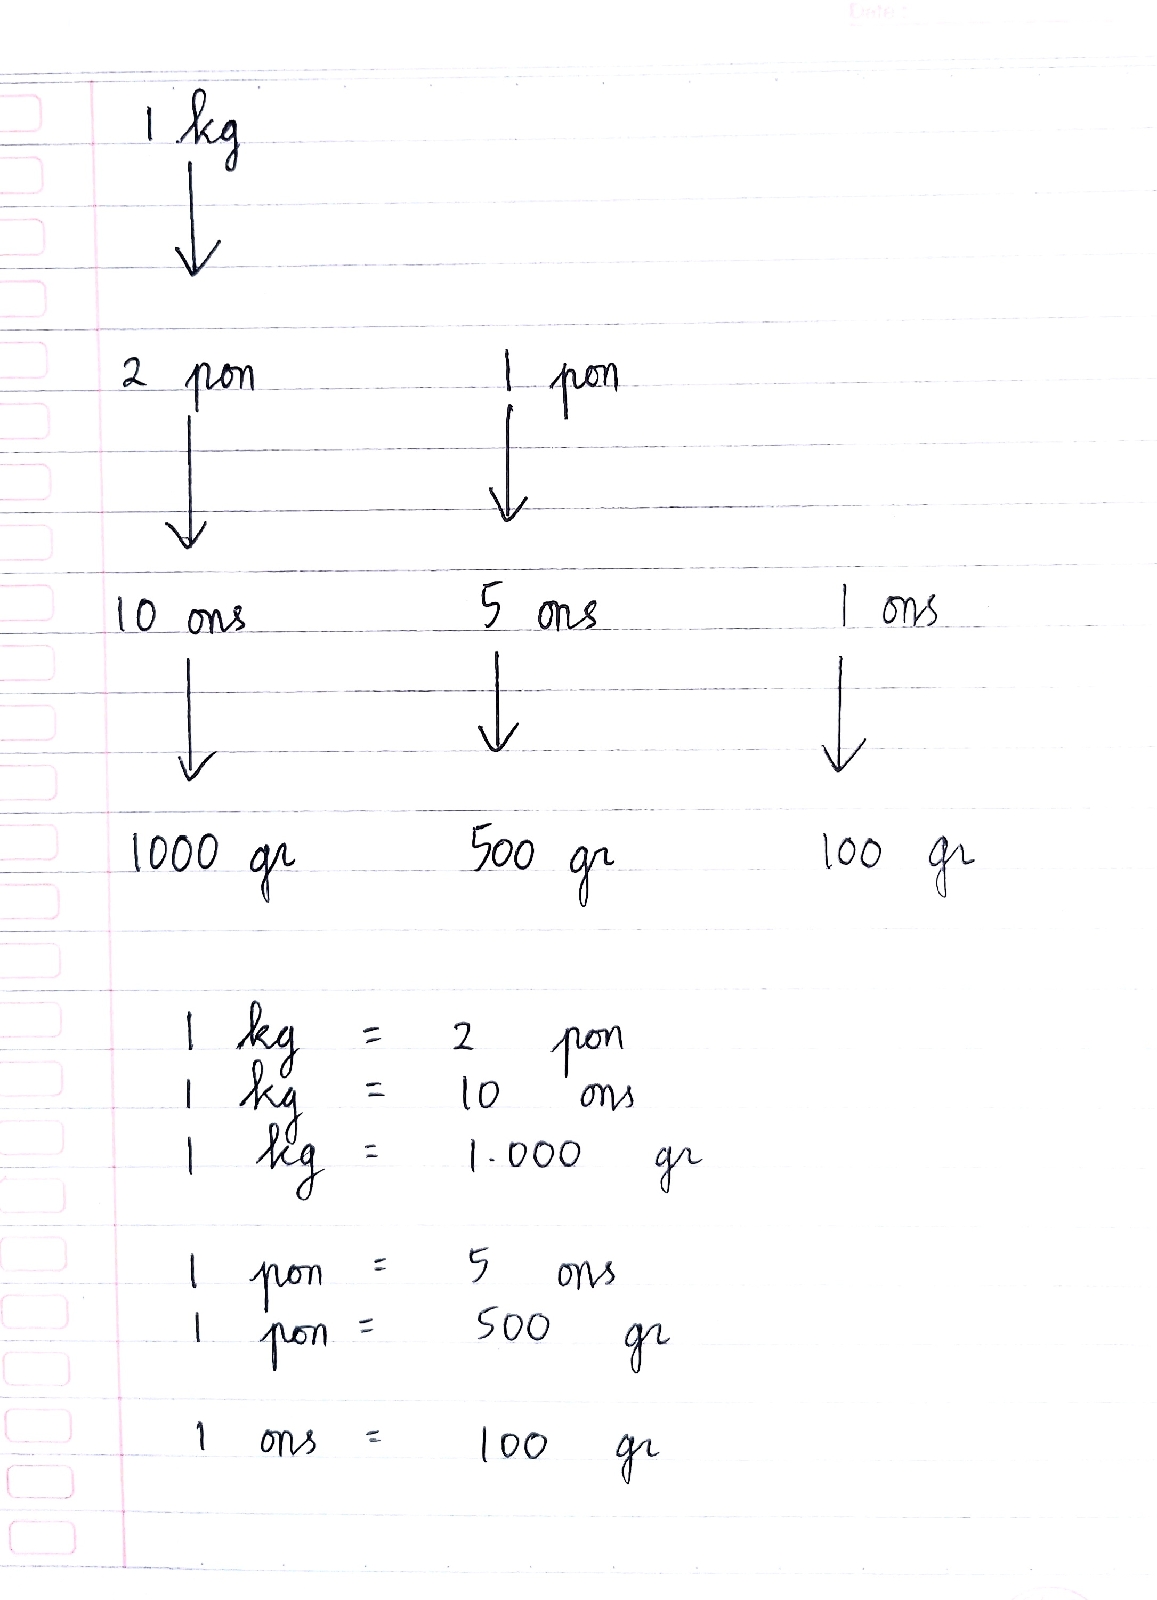 Date:
1 kg
2 pon 1 pon
10 ons 5 ons 1 ons
1000 gr 500 gr 100 gr
1 kg = 2 pon
1 kg = 10 ons
1 kg = 1.000 gr
1 pon = 5 ons
1 pon = 500 gr
1 ons = 100 gr